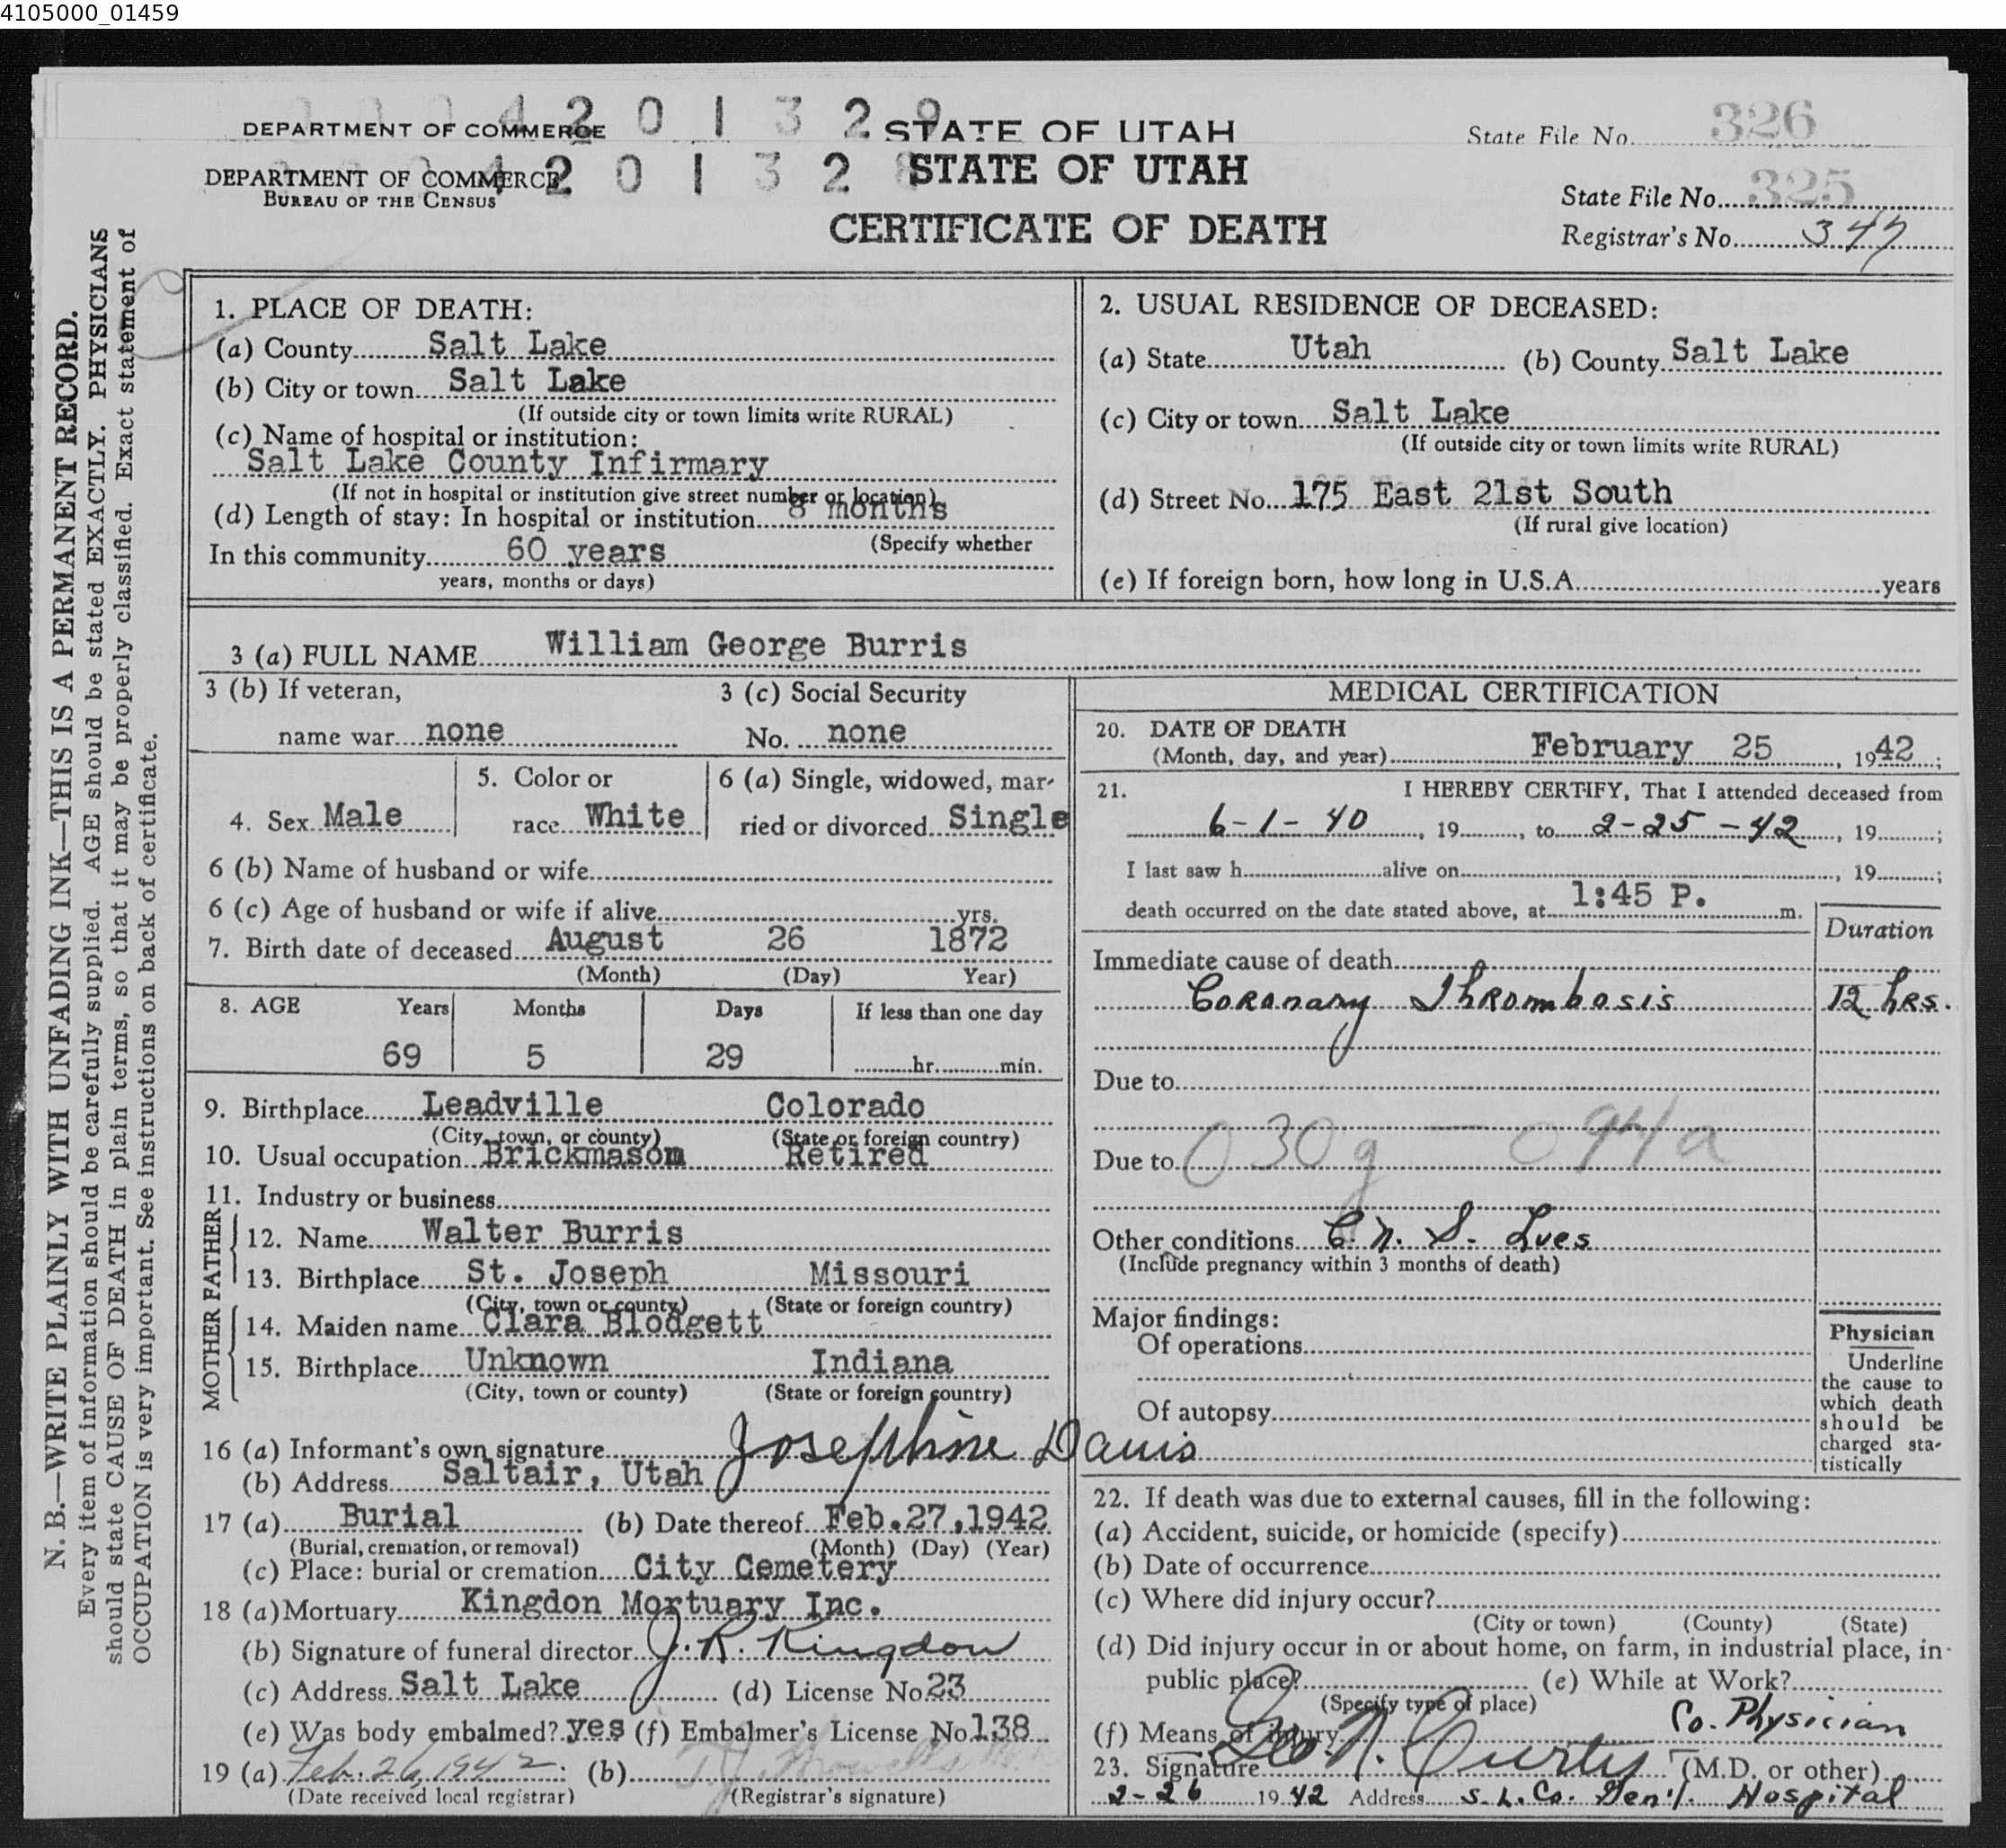 4105000_01459
DEPARTMENT OF COMMERCE 4 2 0 1 3 2 9 STATE OF UTAH State File No. 326
DEPARTMENT OF COMMERCE 4 2 0 1 3 2 8 STATE OF UTAH
BUREAU OF THE CENSUS
State File No. 325
CERTIFICATE OF DEATH
Registrar's No. 347
N. B.—WRITE PLAINLY WITH UNFADING INK—THIS IS A PERMANENT RECORD.
Every item of information should be carefully supplied. AGE should be stated EXACTLY. PHYSICIANS
should state CAUSE OF DEATH in plain terms, so that it may be properly classified. Exact statement of
OCCUPATION is very important. See instructions on back of certificate.
1. PLACE OF DEATH:
(a) County Salt Lake
(b) City or town Salt Lake
(If outside city or town limits write RURAL)
(c) Name of hospital or institution:
Salt Lake County Infirmary
(If not in hospital or institution give street number or location)
(d) Length of stay: In hospital or institution 8 months
(Specify whether
In this community 60 years
years, months or days)
2. USUAL RESIDENCE OF DECEASED:
(a) State Utah (b) County Salt Lake
(c) City or town Salt Lake
(If outside city or town limits write RURAL)
(d) Street No. 175 East 21st South
(If rural give location)
(e) If foreign born, how long in U.S.A. years
3 (a) FULL NAME William George Burris
3 (b) If veteran, 3 (c) Social Security
name war none No. none
4. Sex Male 5. Color or race White 6 (a) Single, widowed, mar-
ried or divorced Single
6 (b) Name of husband or wife
6 (c) Age of husband or wife if alive yrs.
7. Birth date of deceased August 26 1872
(Month) (Day) Year)
8. AGE Years Months Days If less than one day
69 5 29 hr. min.
9. Birthplace Leadville Colorado
(City, town, or county) (State or foreign country)
10. Usual occupation Brickmason Retired
11. Industry or business
FATHER
12. Name Walter Burris
13. Birthplace St. Joseph Missouri
(City, town or county) (State or foreign country)
MOTHER
14. Maiden name Clara Blodgett
15. Birthplace Unknown Indiana
(City, town or county) (State or foreign country)
16 (a) Informant's own signature Josephine Davis
(b) Address Saltair, Utah
17 (a) Burial (b) Date thereof Feb.27,1942
(Burial, cremation, or removal) (Month) (Day) (Year)
(c) Place: burial or cremation City Cemetery
18 (a) Mortuary Kingdon Mortuary Inc.
(b) Signature of funeral director J. R. Kingdon
(c) Address Salt Lake (d) License No 23
(e) Was body embalmed? yes (f) Embalmer's License No 138
19 (a) Feb. 26, 1942 : (b)
(Date received local registrar) (Registrar's signature)
MEDICAL CERTIFICATION
20. DATE OF DEATH
(Month, day, and year) February 25, 1942;
21. I HEREBY CERTIFY, That I attended deceased from
6-1-40, 19 , to 2-25-42, 19 ;
I last saw h alive on , 19 ;
death occurred on the date stated above, at 1:45 P. m.
Duration
Immediate cause of death
Coronary Thrombosis 12 hrs.
Due to
030g — 094a
Due to
Other conditions C. N. S. Lues
(Include pregnancy within 3 months of death)
Major findings:
Of operations
Of autopsy
Physician
Underline
the cause to
which death
should be
charged sta-
tistically
22. If death was due to external causes, fill in the following:
(a) Accident, suicide, or homicide (specify)
(b) Date of occurrence
(c) Where did injury occur?
(City or town) (County) (State)
(d) Did injury occur in or about home, on farm, in industrial place, in
public place? (e) While at Work?
(Specify type of place)
(f) Means of injury
Co. Physician
23. Signature Geo N. Curtis (M.D. or other)
2-26 1942 Address S. L. Co. Gen'l. Hospital